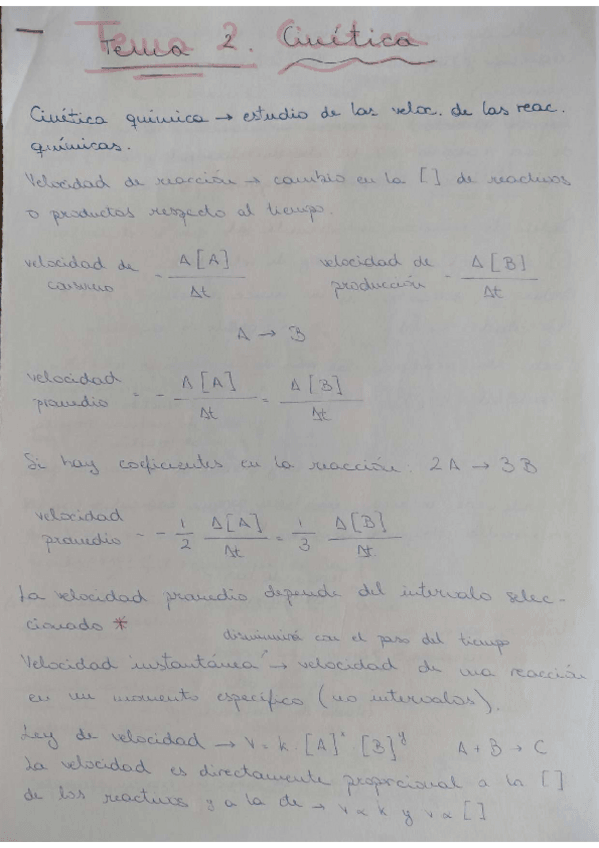 Tema 2. Cinética
Cinética química → estudio de las veloc. de las reac.
químicas.
Velocidad de reacción → cambio en la [] de reactivos
o productos respecto al tiempo.
velocidad de consumo = Δ[A]/Δt velocidad de producción = Δ[B]/Δt
A → B
velocidad promedio = - Δ[A]/Δt = Δ[B]/Δt
Si hay coeficientes en la reacción: 2A → 3B
velocidad promedio = - 1/2 Δ[A]/Δt = 1/3 Δ[B]/Δt
La velocidad promedio depende del intervalo selec-
cionado *
disminuirá con el paso del tiempo
Velocidad instantánea → velocidad de una reacción
en un momento específico (no intervalos).
Ley de velocidad → v = k · [A]ˣ [B]ʸ A + B → C
La velocidad es directamente proporcional a la []
de los reactivos y a la cte → v ∝ k y v ∝ []